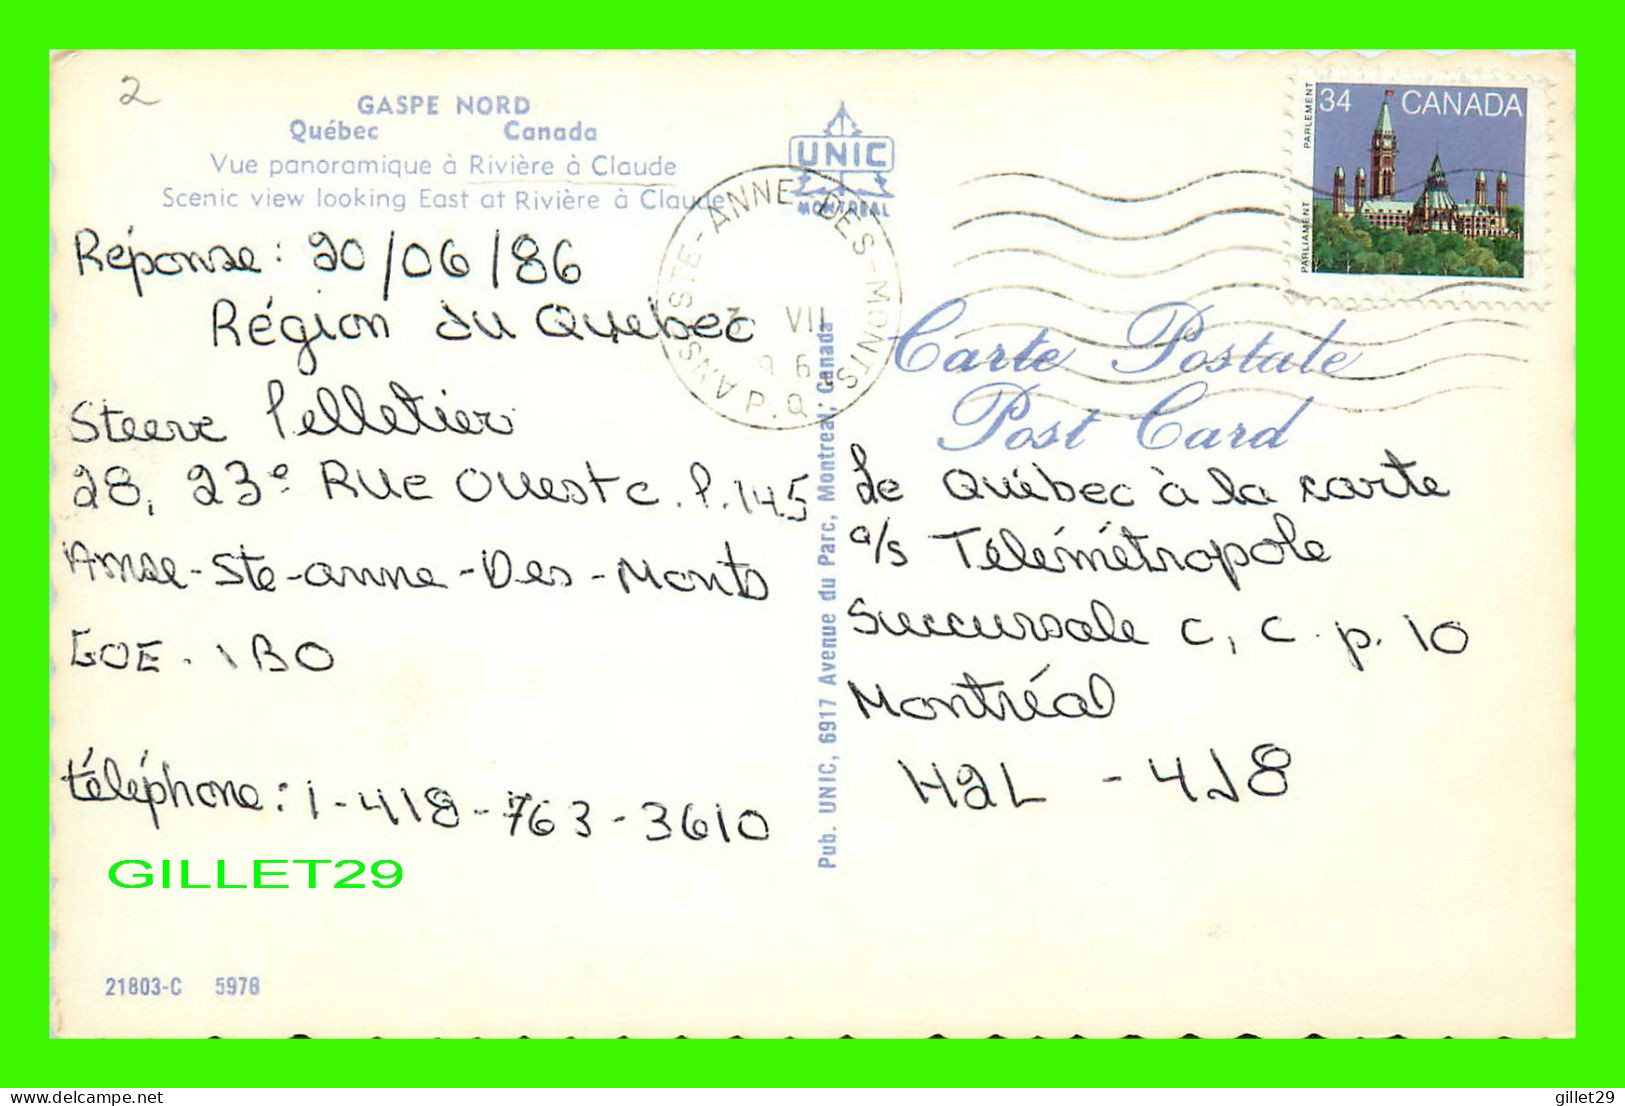 2
GASPE NORD
Québec Canada
Vue panoramique à Rivière à Claude
Scenic view looking East at Rivière à Claude
UNIC
MONTREAL
34 CANADA
PARLIAMENT PARLEMENT
ANSE-STE-ANNE-DES-MONTS
VII
P.Q.
Carte Postale
Post Card
Réponse: 20/06/86
Région du Québec
Steeve Pelletier
28, 23e Rue Ouest c.p.145
Anse-Ste-anne-Des-Monts
GOE-1BO
téléphone: 1-418-763-3610
Pub. UNIC, 6917 Avenue du Parc, Montreal, Canada
Le Québec à la carte
a/s Télémétropole
Succursale C, C.p. 10
Montréal
H2L - 4J8
GILLET29
21803-C 5978
delcampe.net
gillet29